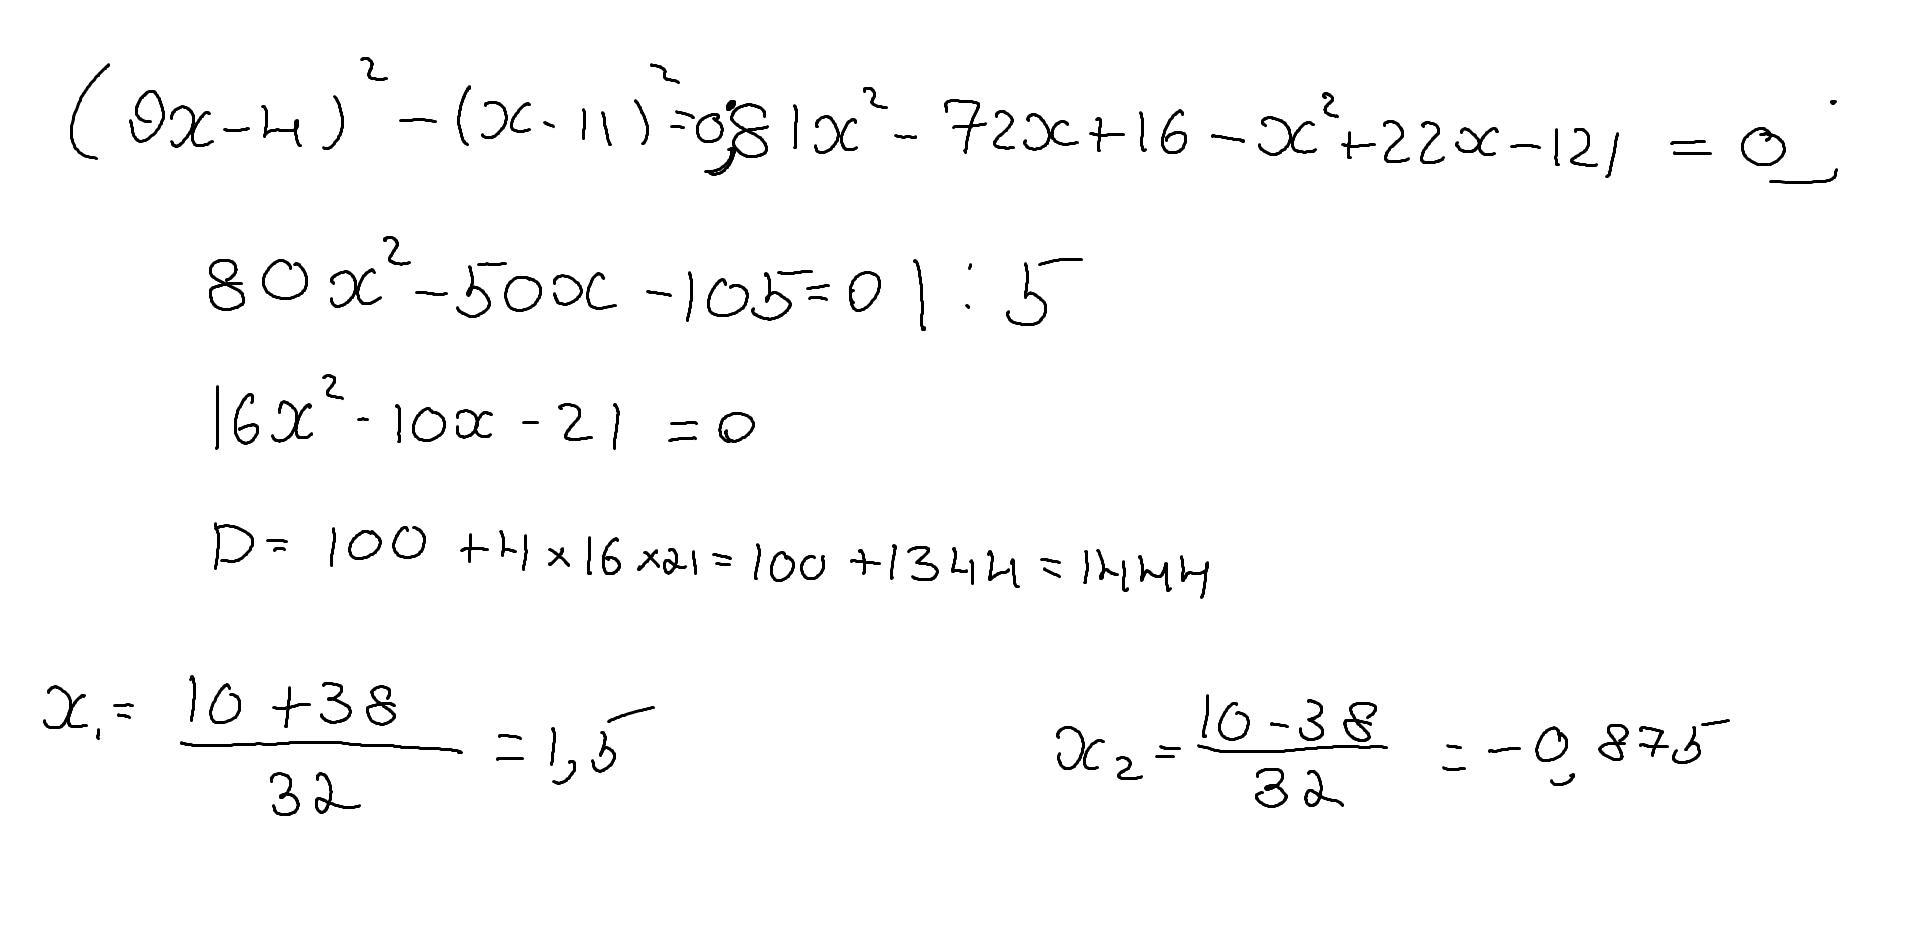 (9x-4)² - (x-11)² = 0; 81x² - 72x + 16 - x² + 22x - 121 = 0;
80x² - 50x - 105 = 0 | : 5
16x² - 10x - 21 = 0
D = 100 + 4 × 16 × 21 = 100 + 1344 = 1444
x₁ = (10 + 38)/32 = 1,5    x₂ = (10 - 38)/32 = -0,875